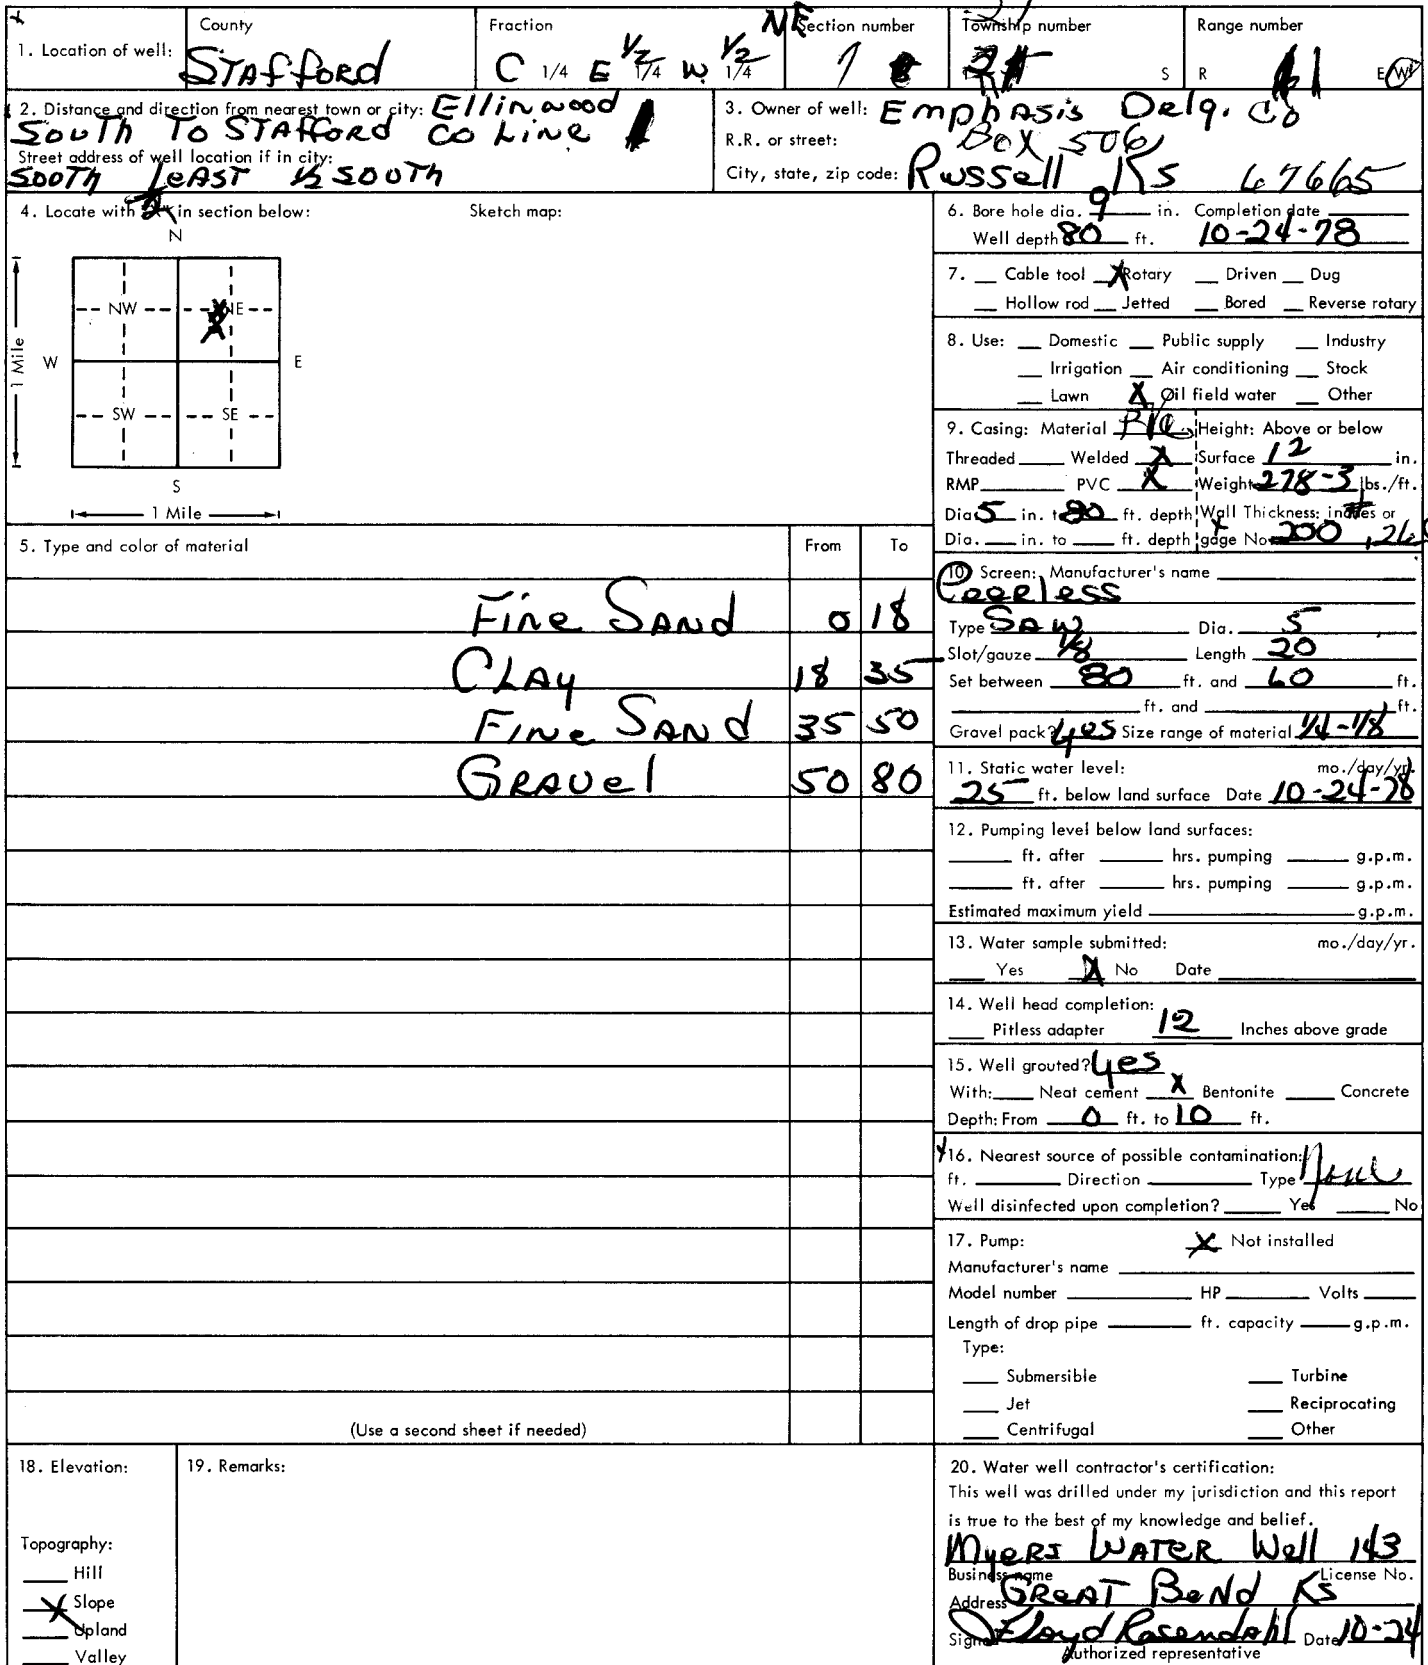 County Fraction NE Section number Township number Range number
1. Location of well: Stafford C 1/4 E 1/2 1/4 W 1/2 1/4 7 21 S R 11 E W
2. Distance and direction from nearest town or city: Ellinwood
South To Stafford Co Line
Street address of well location if in city:
South 1 East 1/2 South
3. Owner of well: Emphasis Delq. Co
R.R. or street: Box 506
City, state, zip code: Russell Ks 67665
4. Locate with X in section below: Sketch map:
N
NW NE
W E
1 Mile
SW SE
S
1 Mile
5. Type and color of material From To
Fine Sand 0 18
Clay 18 35
Fine Sand 35 50
Gravel 50 80
(Use a second sheet if needed)
6. Bore hole dia. 9 in. Completion date
Well depth 80 ft. 10-24-78
7. Cable tool X Rotary Driven Dug
Hollow rod Jetted Bored Reverse rotary
8. Use: Domestic Public supply Industry
Irrigation Air conditioning Stock
Lawn X Oil field water Other
9. Casing: Material PVC Height: Above or below
Threaded Welded X Surface 12 in.
RMP PVC X Weight 278-3 lbs./ft.
Dia. 5 in. to 80 ft. depth Wall Thickness: inches or
Dia. in. to ft. depth gage No. # 200
10. Screen: Manufacturer's name
Peerless
Type Saw Dia. 5
Slot/gauze 1/8 Length 20
Set between 80 ft. and 60 ft.
ft. and ft.
Gravel pack? yes Size range of material 1/4-1/8
11. Static water level: mo./day/yr.
25 ft. below land surface Date 10-24-78
12. Pumping level below land surfaces:
ft. after hrs. pumping g.p.m.
ft. after hrs. pumping g.p.m.
Estimated maximum yield g.p.m.
13. Water sample submitted: mo./day/yr.
Yes X No Date
14. Well head completion:
Pitless adapter 12 Inches above grade
15. Well grouted? yes
With: Neat cement X Bentonite Concrete
Depth: From 0 ft. to 10 ft.
16. Nearest source of possible contamination:
ft. Direction Type None
Well disinfected upon completion? Yes No
17. Pump: X Not installed
Manufacturer's name
Model number HP Volts
Length of drop pipe ft. capacity g.p.m.
Type:
Submersible Turbine
Jet Reciprocating
Centrifugal Other
18. Elevation: 19. Remarks:
Topography:
Hill
X Slope
Upland
Valley
20. Water well contractor's certification:
This well was drilled under my jurisdiction and this report
is true to the best of my knowledge and belief.
Myers Water Well 143
Business name License No.
Address Great Bend Ks
Signed Floyd Rosendahl Date 10-24
Authorized representative